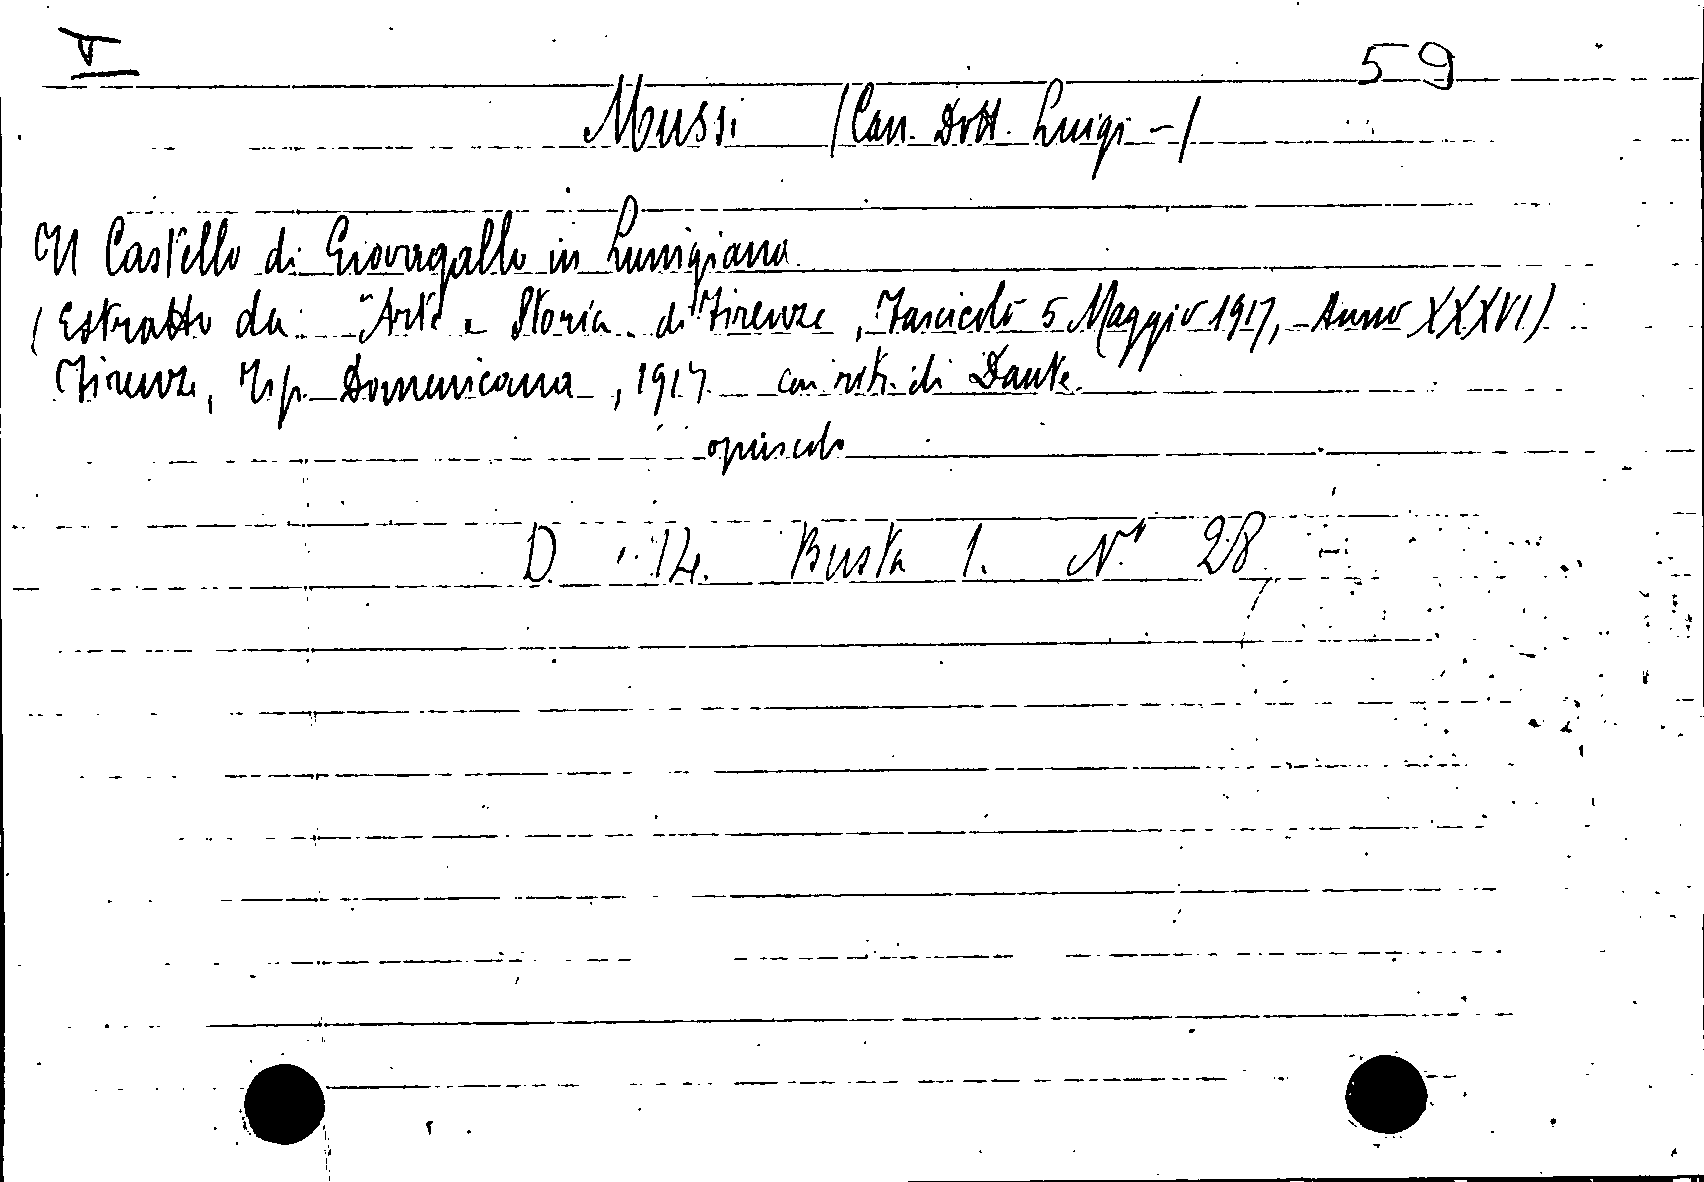 V 59
Mussi (Can. Dott. Luigi -)
Il Castello di Giovagallo in Lunigiana
(Estratto da "Arte e Storia" di Firenze, Fascicolo 5 Maggio 1917, Anno XXXVI)
Firenze, Tip. Domenicana, 1917 con ritr. di Dante
opuscolo
D. 14. Busta 1. N.° 28